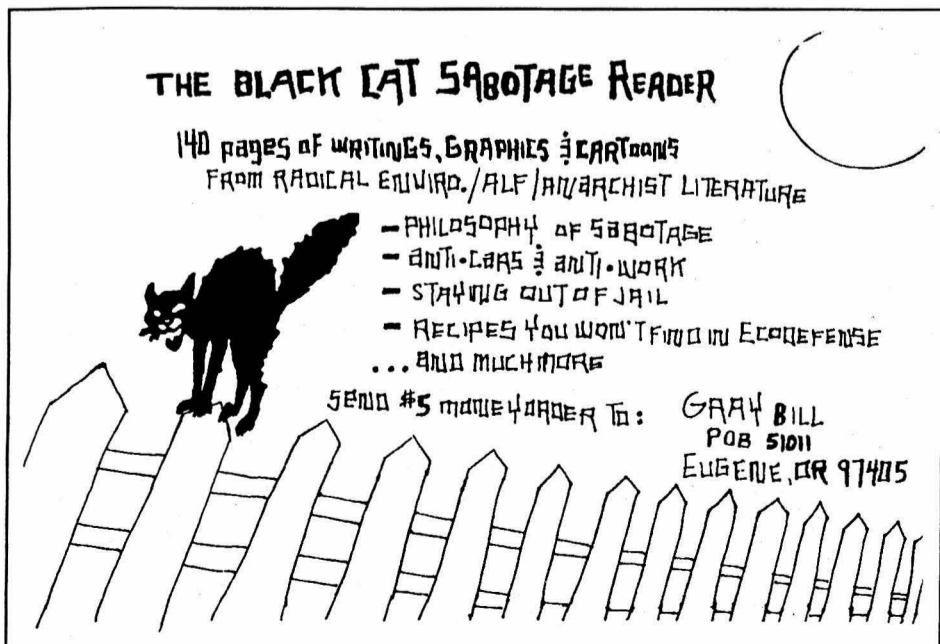 THE BLACK CAT SABOTAGE READER
140 pages of WRITINGS, GRAPHICS & CARTOONS
FROM RADICAL ENVIRO./ALF/ANARCHIST LITERATURE
- PHILOSOPHY OF SABOTAGE
- ANTI-CARS & ANTI-WORK
- STAYING OUT OF JAIL
- RECIPES YOU WON'T FIND IN ECODEFENSE
... AND MUCH MORE
SEND #5 MONEYORDER TO:
GRAY BILL
POB 51011
EUGENE, OR 97405